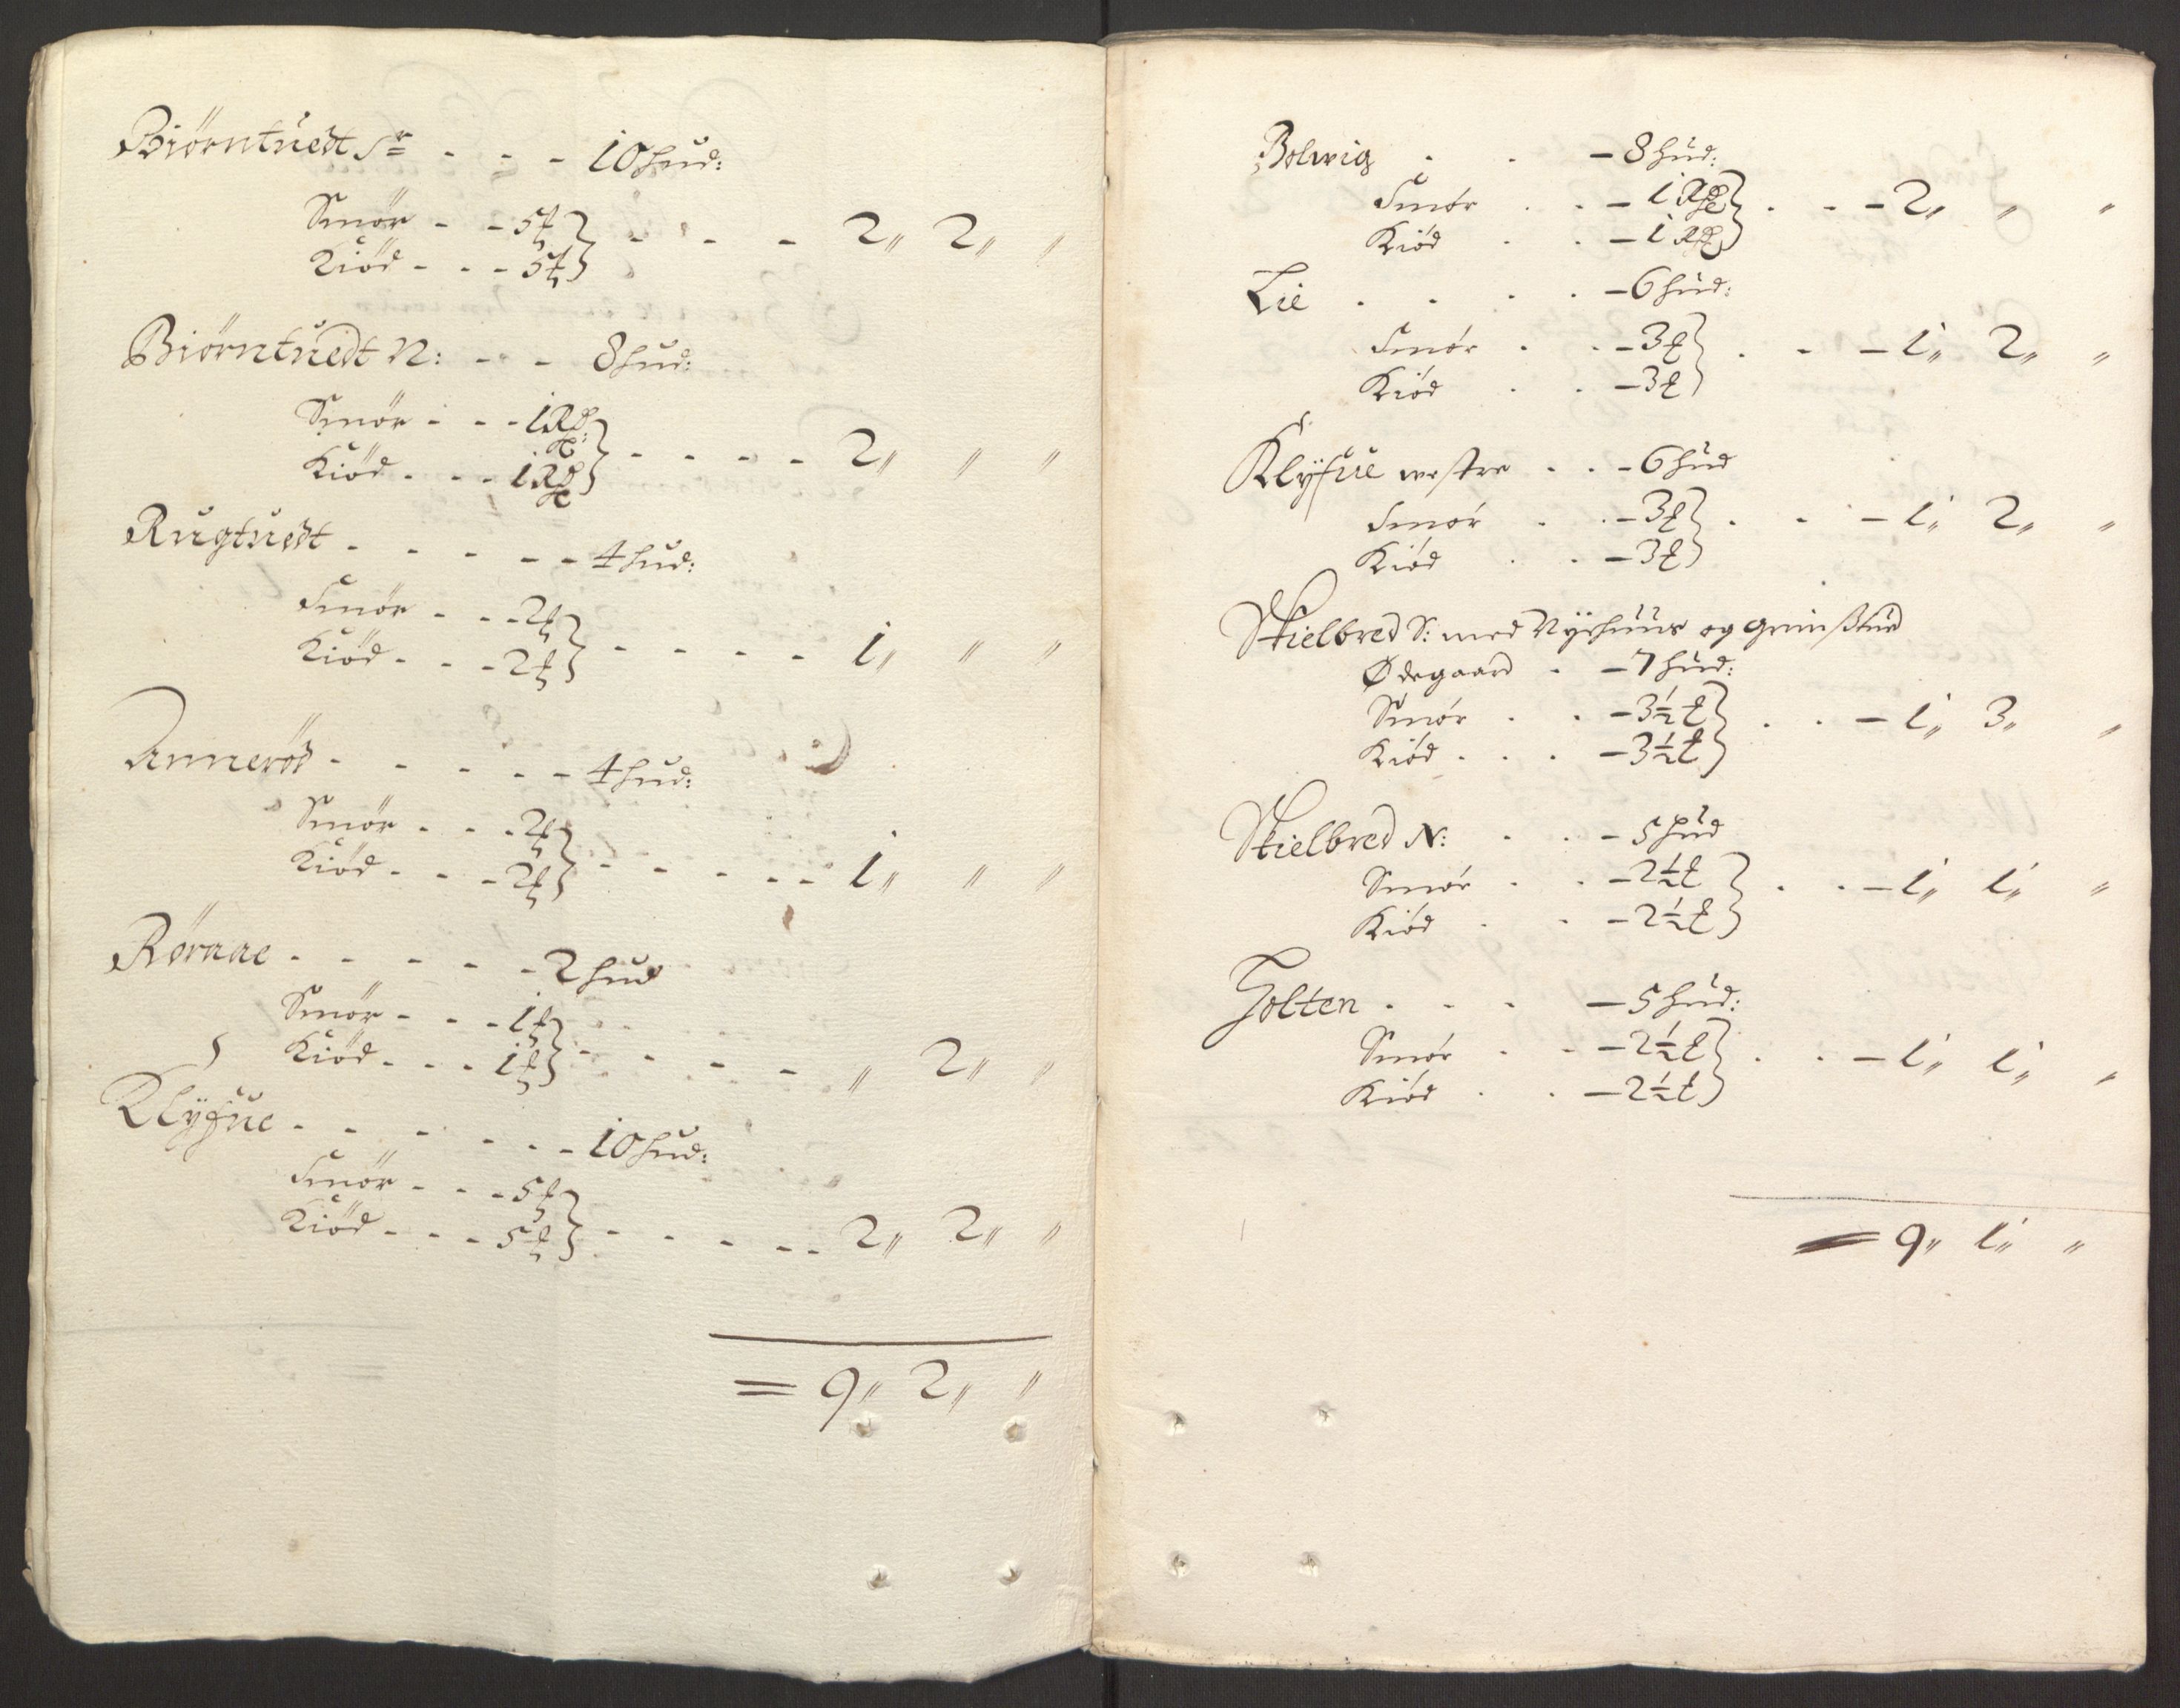 Biörntuedt Sr - - - 10 hud:
Smör - - 5 ℔ } - - - 2,, 2,, ,,
Kiöd - - - 5 ℔
Biörntuedt N: - - 8 hud:
Smör - - - 1 R℔: } - - - - 2,, ,, ,,
Kiöd - - - 1 R℔
Rugtuedt - - - - - 4 hud:
Smör - - - 2 ℔ } - - - - 1,, ,, ,,
Kiöd - - - 2 ℔
Anneröd - - - - - 4 hud:
Smör - - - 2 ℔ } - - - - - 1,, ,, ,,
Kiöd - - - 2 ℔
Röraae - - - - - 2 hud
Smör - - - 1 ℔ } - - - - ,, 2,, ,,
Kiöd - - - 1 ℔
Klÿfue - - - - - - 10 hud:
Smör - - - 5 ℔ } - - - - - 2,, 2,, ,,
Kiöd - - - 5 ℔
= 9,, 2,, ,,
Bolwig - - - 8 hud:
Smör - - - 1 R℔ } - - - 2,, ,, ,,
Kiöd - - - 1 R℔
Lie - - - - - 6 hud:
Smör - - - 3 ℔ } - - - 1,, 2,, ,,
Kiöd - - - 3 ℔
Klÿfue westre - - - 6 hud
Smör - - - 3 ℔ } - - - 1,, 2,, ,,
Kiöd - - - 3 ℔
Skielbred S: med Nyehuus og
Ødegaard - - 7 hud:
Smör - - - 3½ ℔ } - - - 1,, 3,, ,,
Kiöd - - - 3½ ℔
Skielbred N: - - - 5 hud
Smör - - - 2½ ℔ } - - - 1,, 1,, ,,
Kiöd - - - 2½ ℔
Holten - - - - 5 hud:
Smör - - - 2½ ℔ } - - - 1,, 1,, ,,
Kiöd - - - 2½ ℔
= 9,, 1,, ,,